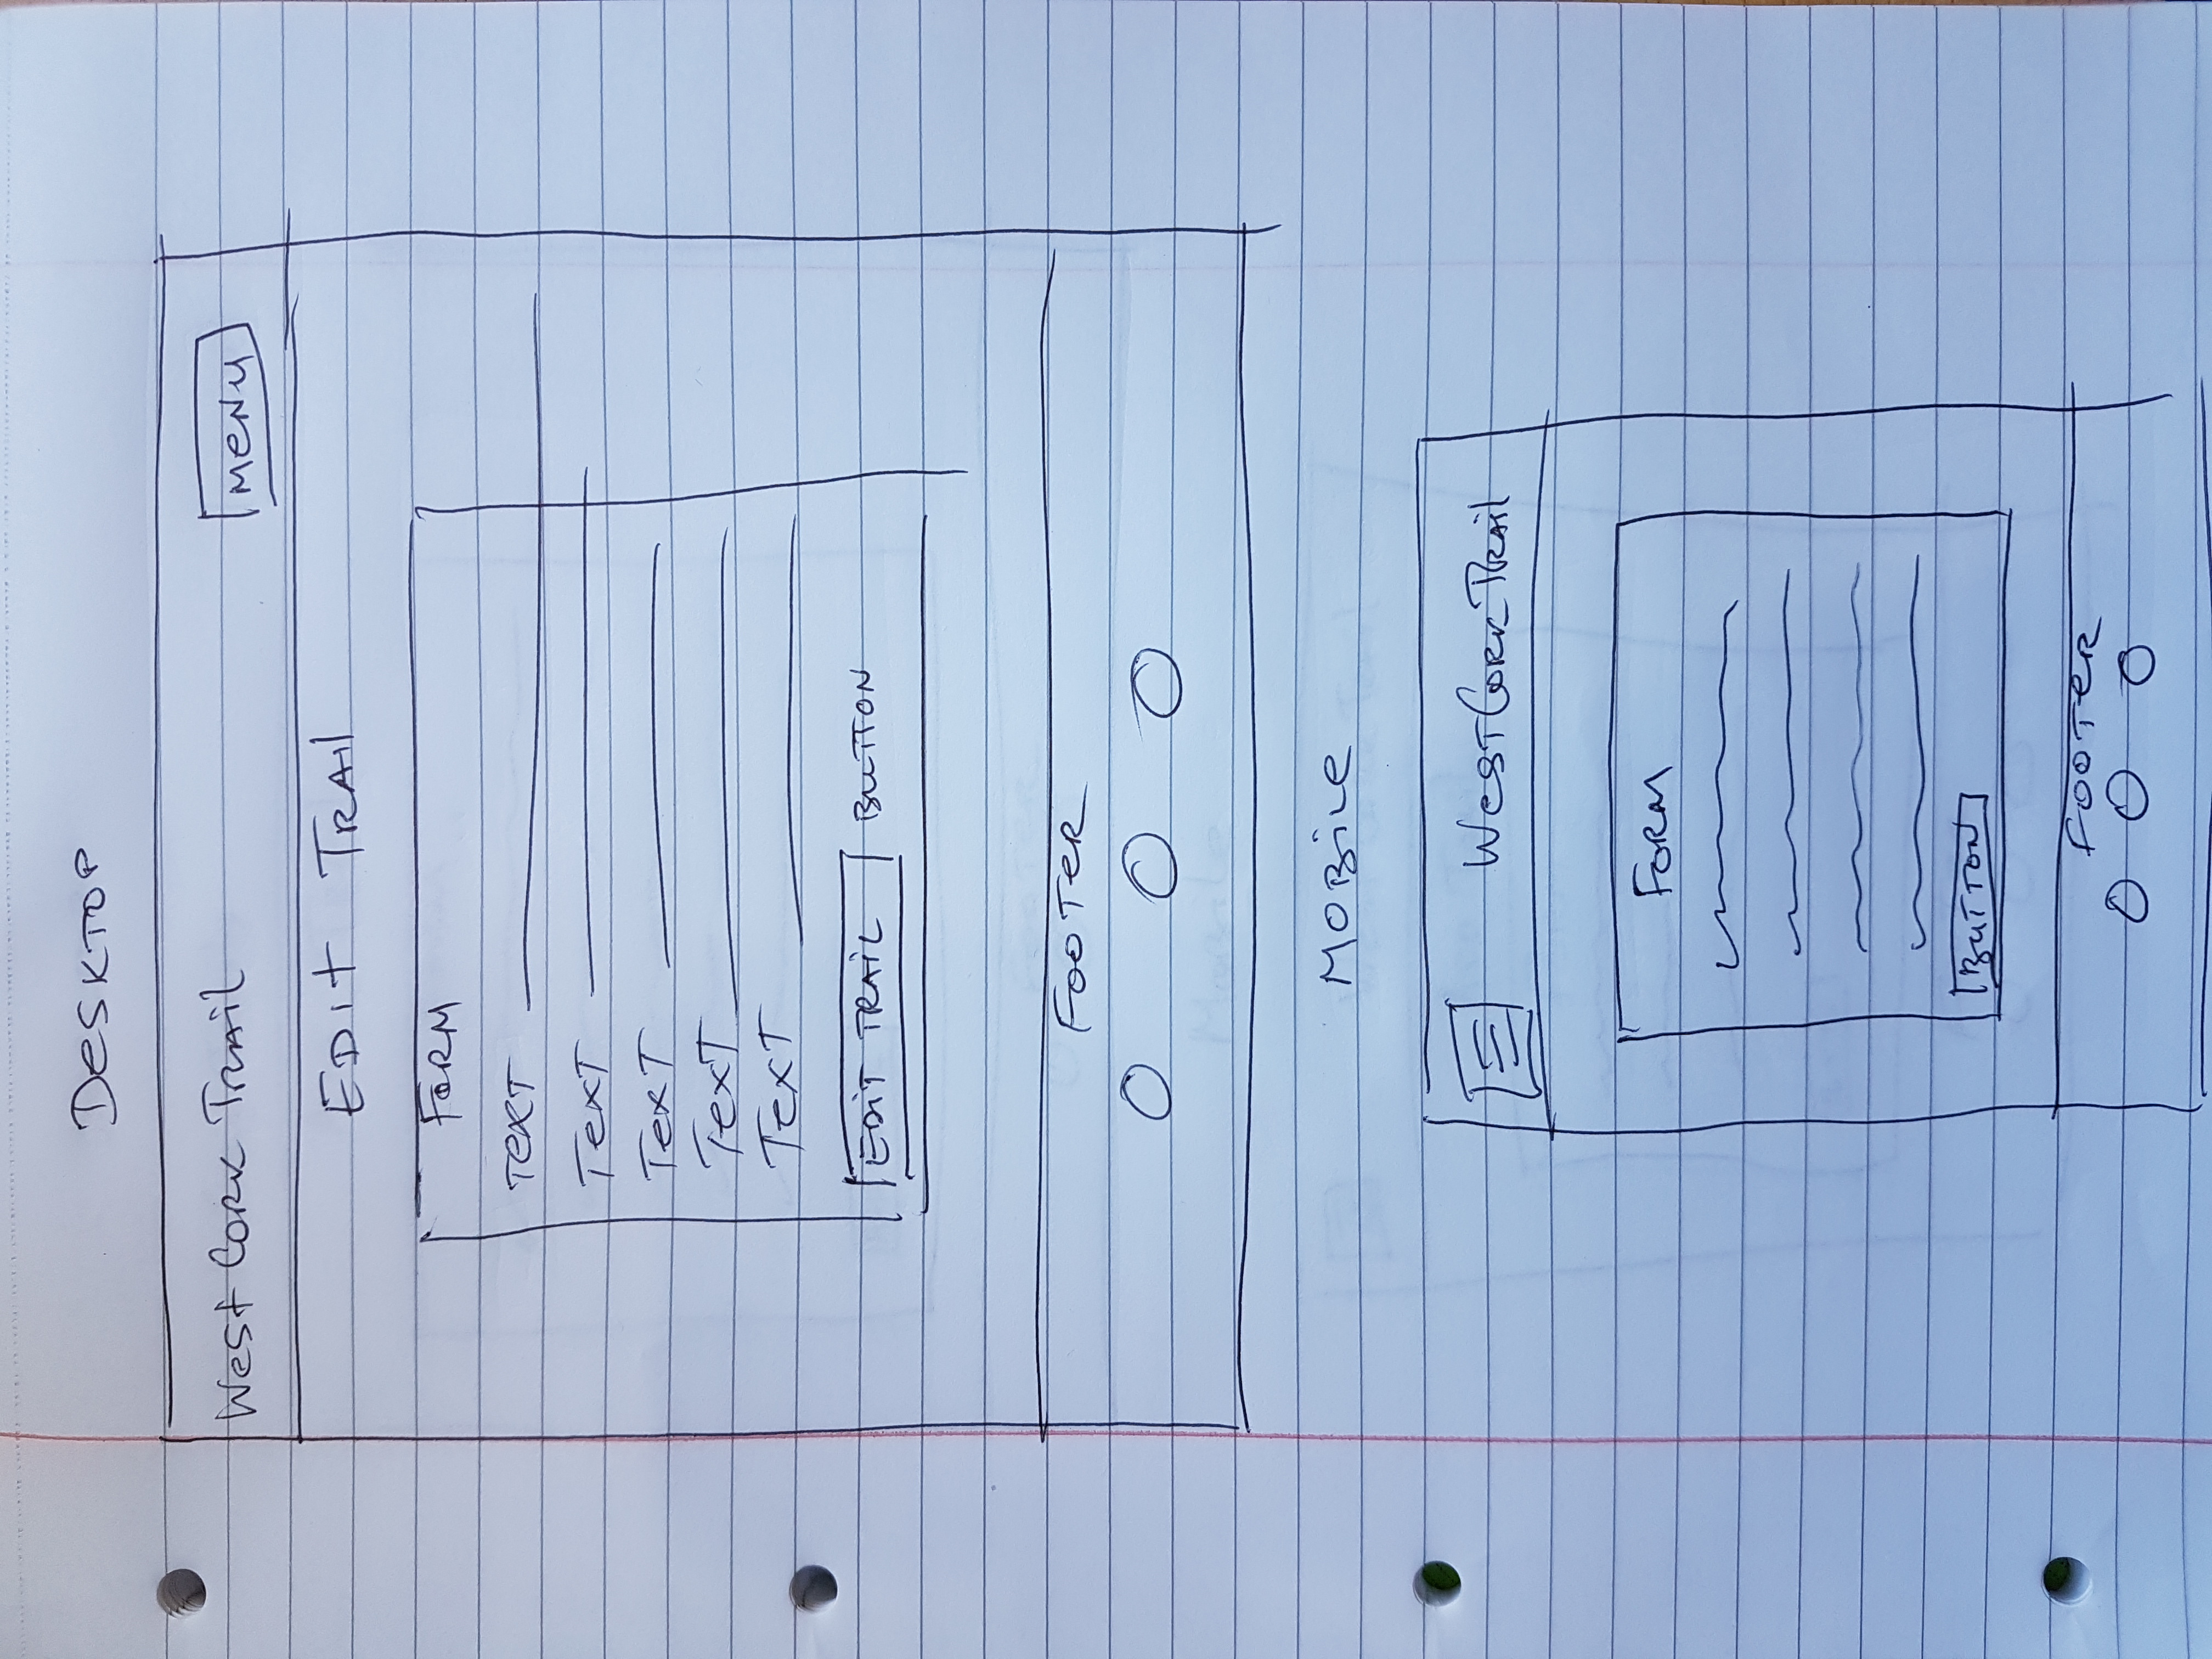 DESKTOP
West Cork Trail
MENU
EDIT TRAIL
FORM
TEXT
TEXT
TEXT
TEXT
TEXT
EDIT TRAIL BUTTON
FOOTER
MOBILE
WEST CORK TRAIL
FORM
BUTTON
FOOTER